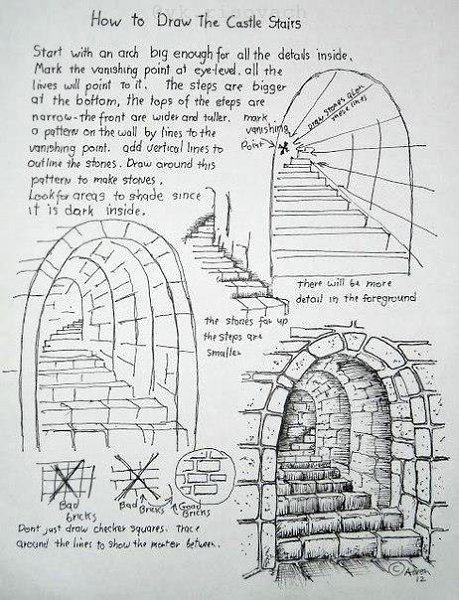 How to Draw The Castle Stairs
Start with an arch big enough for all the details inside.
Mark the vanishing point at eye-level. all the
lines will point to it. The steps are bigger
at the bottom, the tops of the steps are
narrow-the front are wider and taller.
a pattern on the wall by lines to the
vanishing point. add vertical lines to
outline the stones. Draw around this
pattern to make stones.
Look for areas to shade since
it is dark inside.
mark
vanishing
point
Draw stones along
these lines
There will be more
detail in the foreground
the stones far up
the steps are
smaller
Bad
bricks
Bad
Bricks
Good
Bricks
Dont just draw checker squares. Trace
around the lines to show the morter between.
©
12